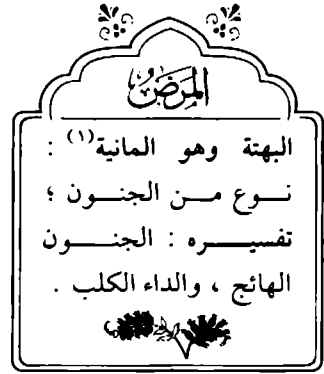 المَرَضُ
البهتة وهو المانية(١) :
نوع من الجنون ؛
تفسيره : الجنون
الهائج ، والداء الكلب .